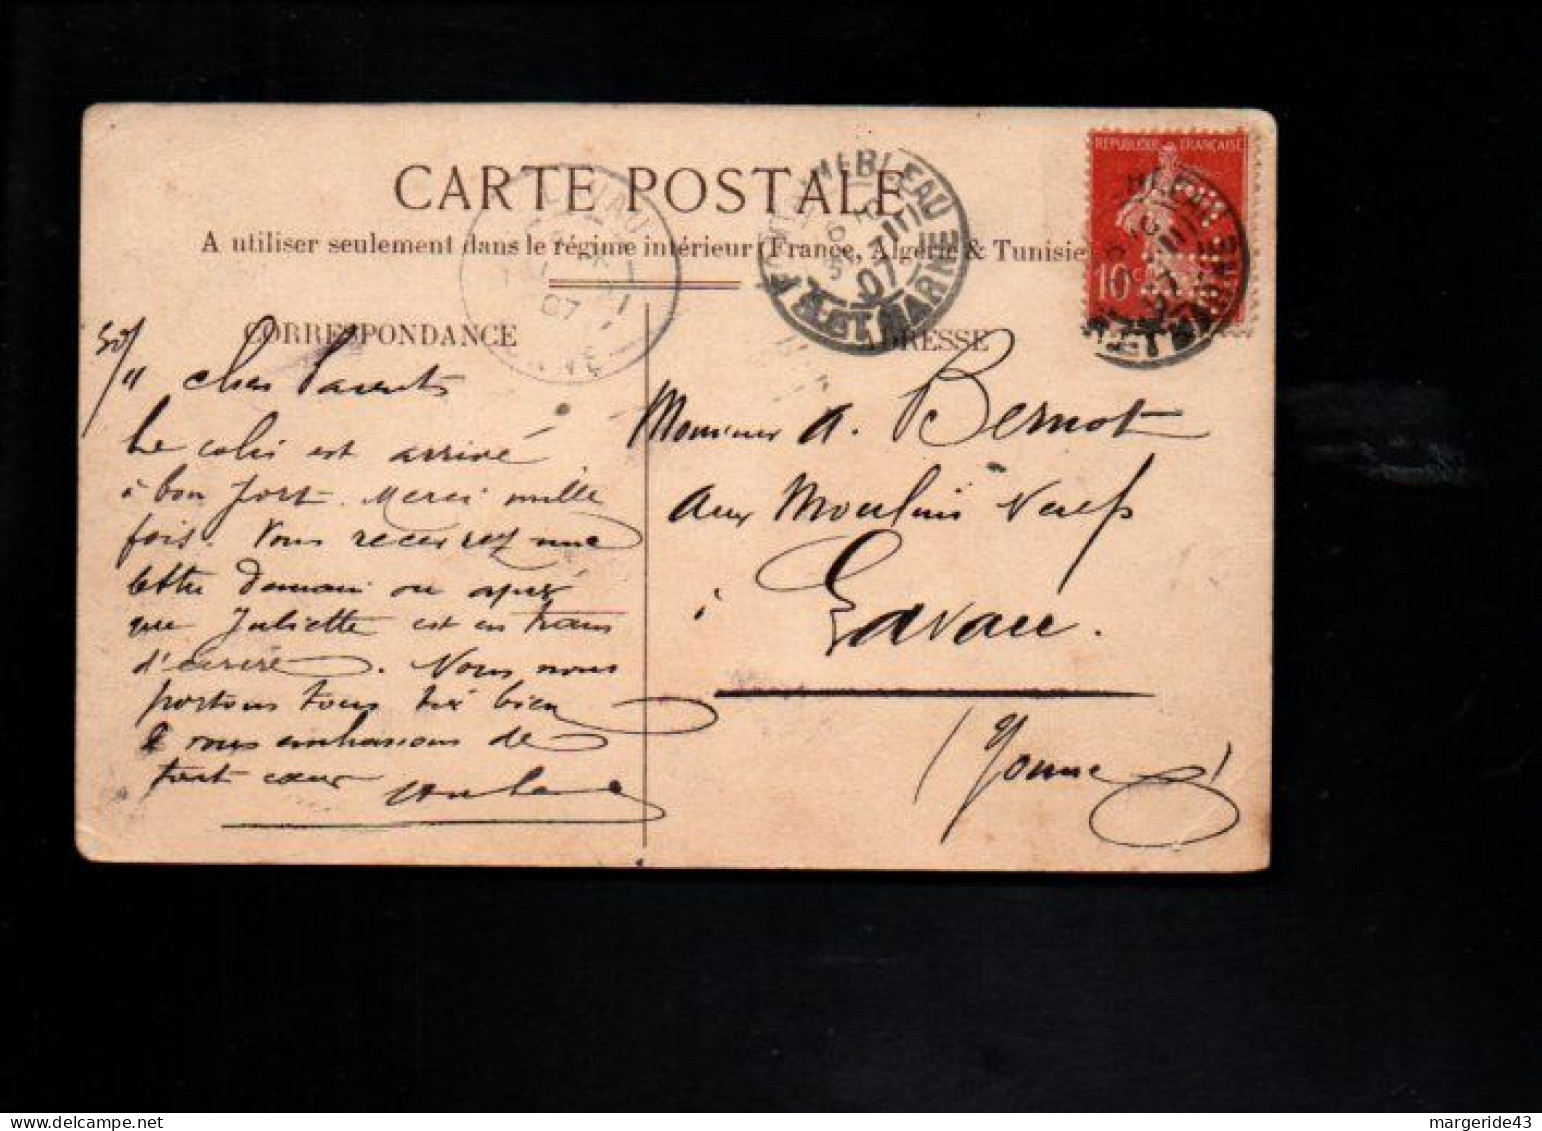 CARTE POSTALE
A utiliser seulement dans le régime intérieur (France, Algérie & Tunisie
REPUBLIQUE FRANÇAISE
10c
CORRESPONDANCE
ADRESSE
chers Parents
Le colis est arrivé
à bon port. Merci mille
fois. Vous recevrez une
lettre demain ou après
que Juliette est en train
d'écrire. Nous nous
portons tous très bien
& vous embrassons de
tout cœur
Monsieur A. Bernot
aux Moulins Neufs
à
Lavau.
(Yonne)
ET MARNE
07
margeride43